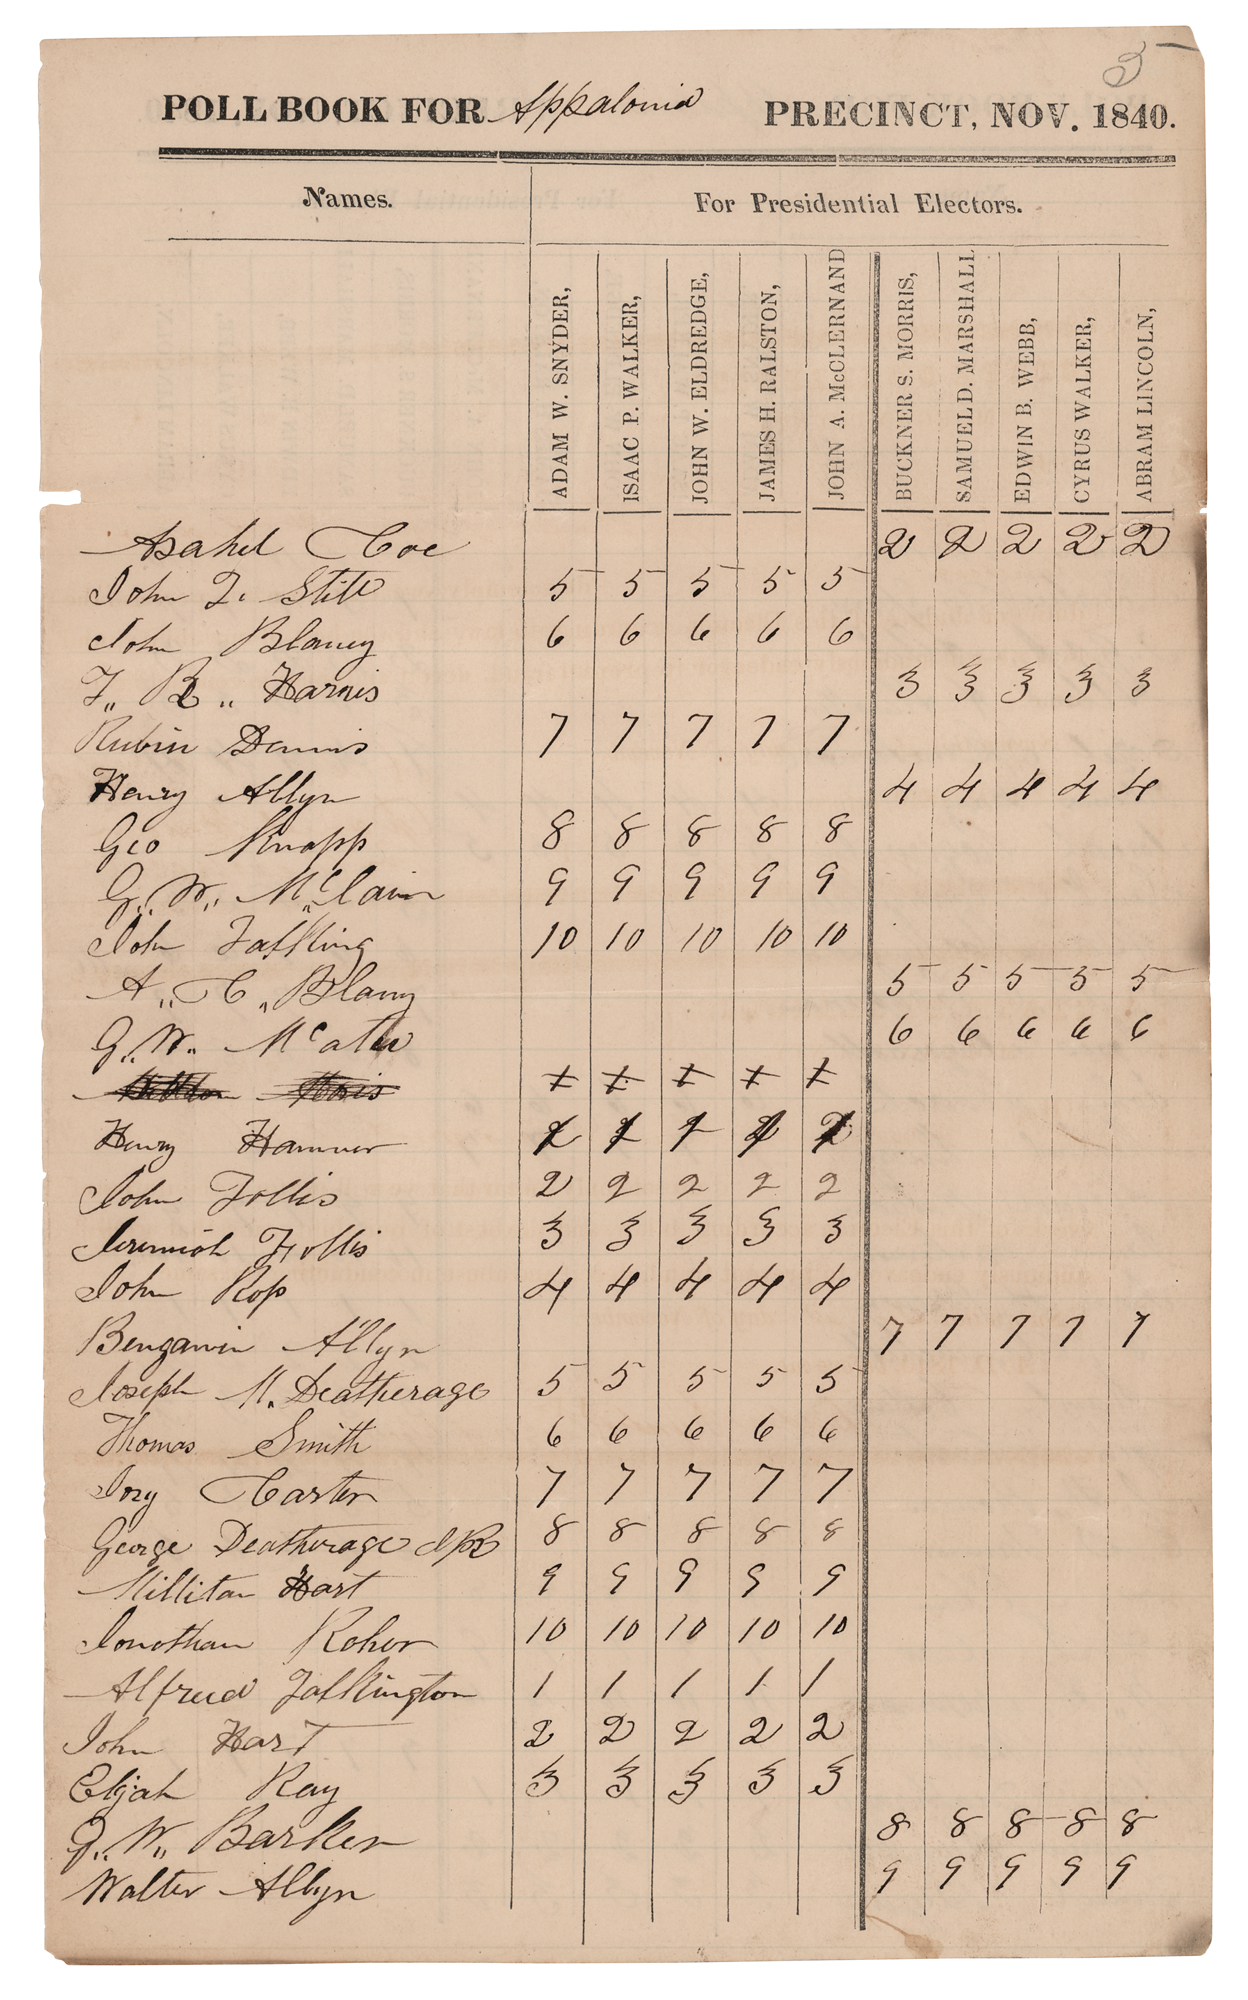 5
POLL BOOK FOR Appalonia PRECINCT, NOV. 1840.
Names. For Presidential Electors.
ADAM W. SNYDER,
ISAAC P. WALKER,
JOHN W. ELDREDGE,
JAMES H. RALSTON,
JOHN A. McCLERNAND
BUCKNER S. MORRIS,
SAMUEL D. MARSHALL
EDWIN B. WEBB,
CYRUS WALKER,
ABRAM LINCOLN,
Asahel Coe 2 2 2 2 2
John T. Stitt 5 5 5 5 5
John Blaney 6 6 6 6 6
T,, B ,, Harris 3 3 3 3 3
Rubin Dennis 7 7 7 7 7
Henry Allyn 4 4 4 4 4
Geo Knapp 8 8 8 8 8
G,, W,, McClain 9 9 9 9 9
John Talking 10 10 10 10 10
A ,, C ,, Blany 5 5 5 5 5
G,, W,, McAtee 6 6 6 6 6
Henry Hamner
John Follis 2 2 2 2 2
Jeremiah Follis 3 3 3 3 3
John Rop 4 4 4 4 4
Bengamin Allyn 7 7 7 7 7
Joseph M. Deatherage 5 5 5 5 5
Thomas Smith 6 6 6 6 6
Ivry Carter 7 7 7 7 7
George Deatherage 8 8 8 8 8
Millitan Hart 9 9 9 9 9
Jonothan Roher 10 10 10 10 10
Alfred Talkington 1 1 1 1 1
John Hart 2 2 2 2 2
Elijah Ray 3 3 3 3 3
G,, W,, Barker 8 8 8 8 8
Walter Allyn 9 9 9 9 9